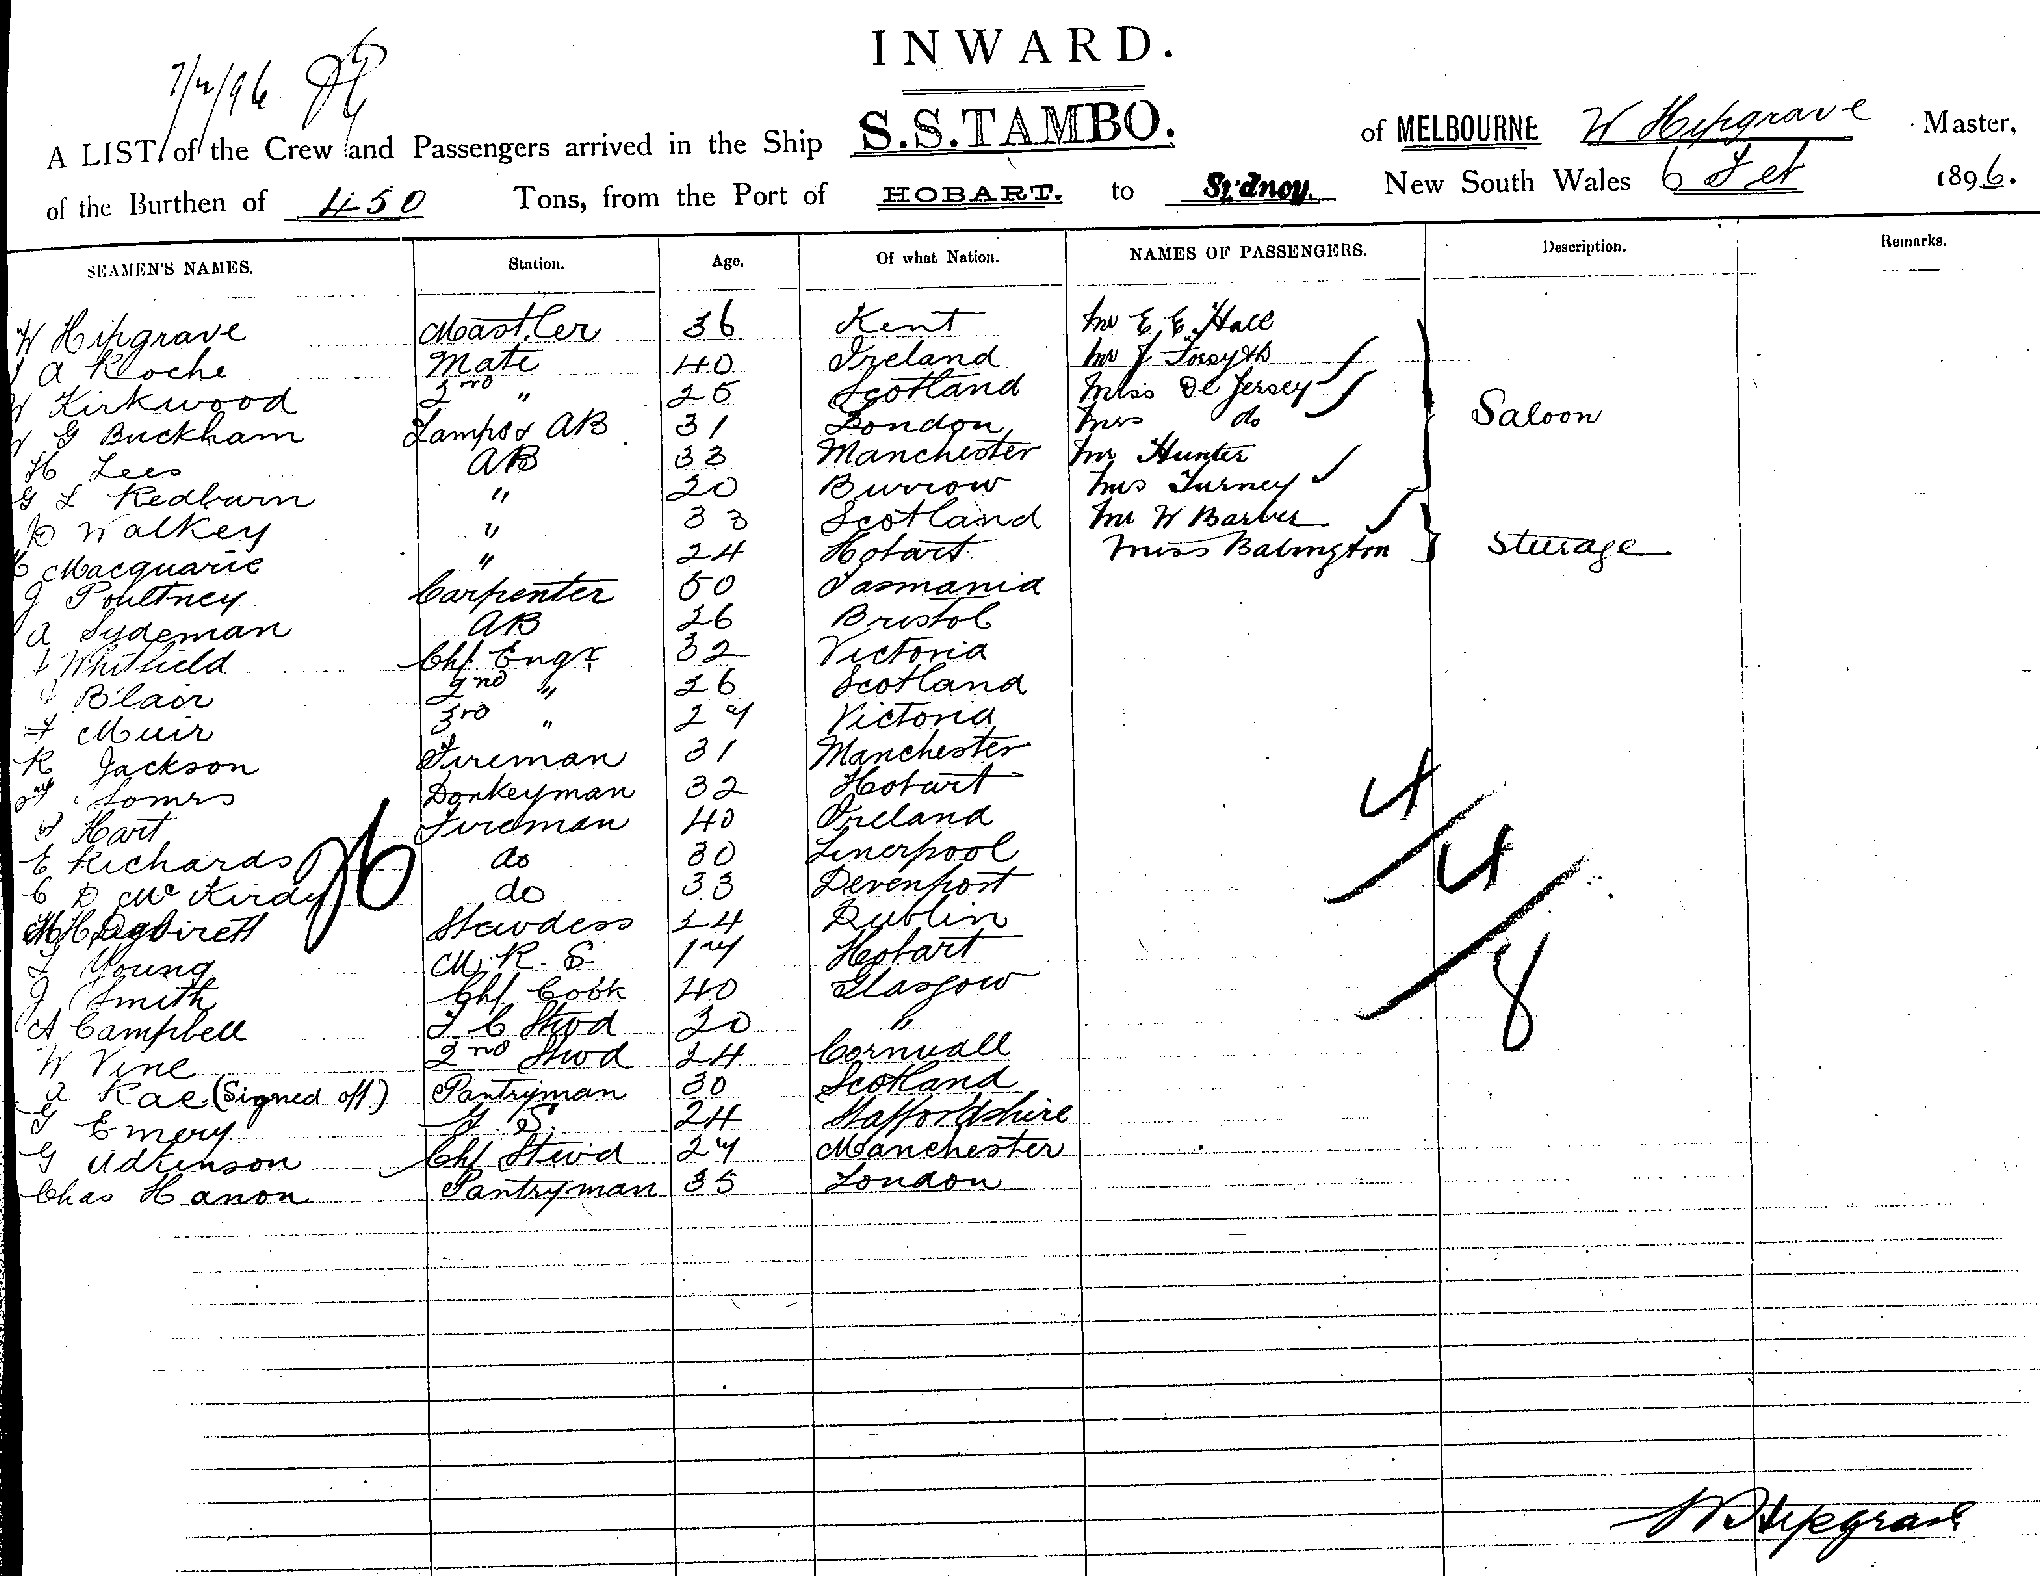 INWARD.
7/2/96
A LIST of the Crew and Passengers arrived in the Ship S.S.TAMBO. of MELBOURNE W Hipgrave Master,
of the Burthen of 450 Tons, from the Port of HOBART. to Sydney. New South Wales 6 Feb 1896.
SEAMEN'S NAMES. Station. Age. Of what Nation. NAMES OF PASSENGERS. Description. Remarks.
W Hipgrave Master 36 Kent Mr E. E. Hall
A Roche Mate 40 Ireland Mr J Forsyth
W Kirkwood 2nd " 25 Scotland Miss De Jersey
W G Buckham Lamps & AB 31 London Mrs do Saloon
H Lees AB 33 Manchester Mr Hunter
G L Redburn " 20 Burrow Mrs Turney
Walkey " 33 Scotland Mr W Barber
C Macquarie " 24 Hobart Miss Babington Steerage
J Poultney Carpenter 50 Tasmania
A Sydeman AB 26 Bristol
Whitfield Chf Engr 32 Victoria
Blair 2nd " 26 Scotland
F Muir 3rd " 27 Victoria
R Jackson Fireman 31 Manchester
Somrs Donkeyman 32 Hobart
Hart Fireman 40 Ireland
E Richards do 30 Linerpool
C D McKirdy do 33 Devenport
Stewdess 24 Dublin
Young M. R. S 17 Hobart
J Smith Chf Cook 40 Glasgow
A Campbell F C Stwd 30 "
W Vine 2nd Stwd 24 Cornwall
A Rae (Signed off) Pantryman 30 Scotland
G Emery F. S. 24 Staffordshire
G Adkinson Chf Stewd 27 Manchester
Chas Hanon Pantryman 35 London
4/4/8
W Hipgrave